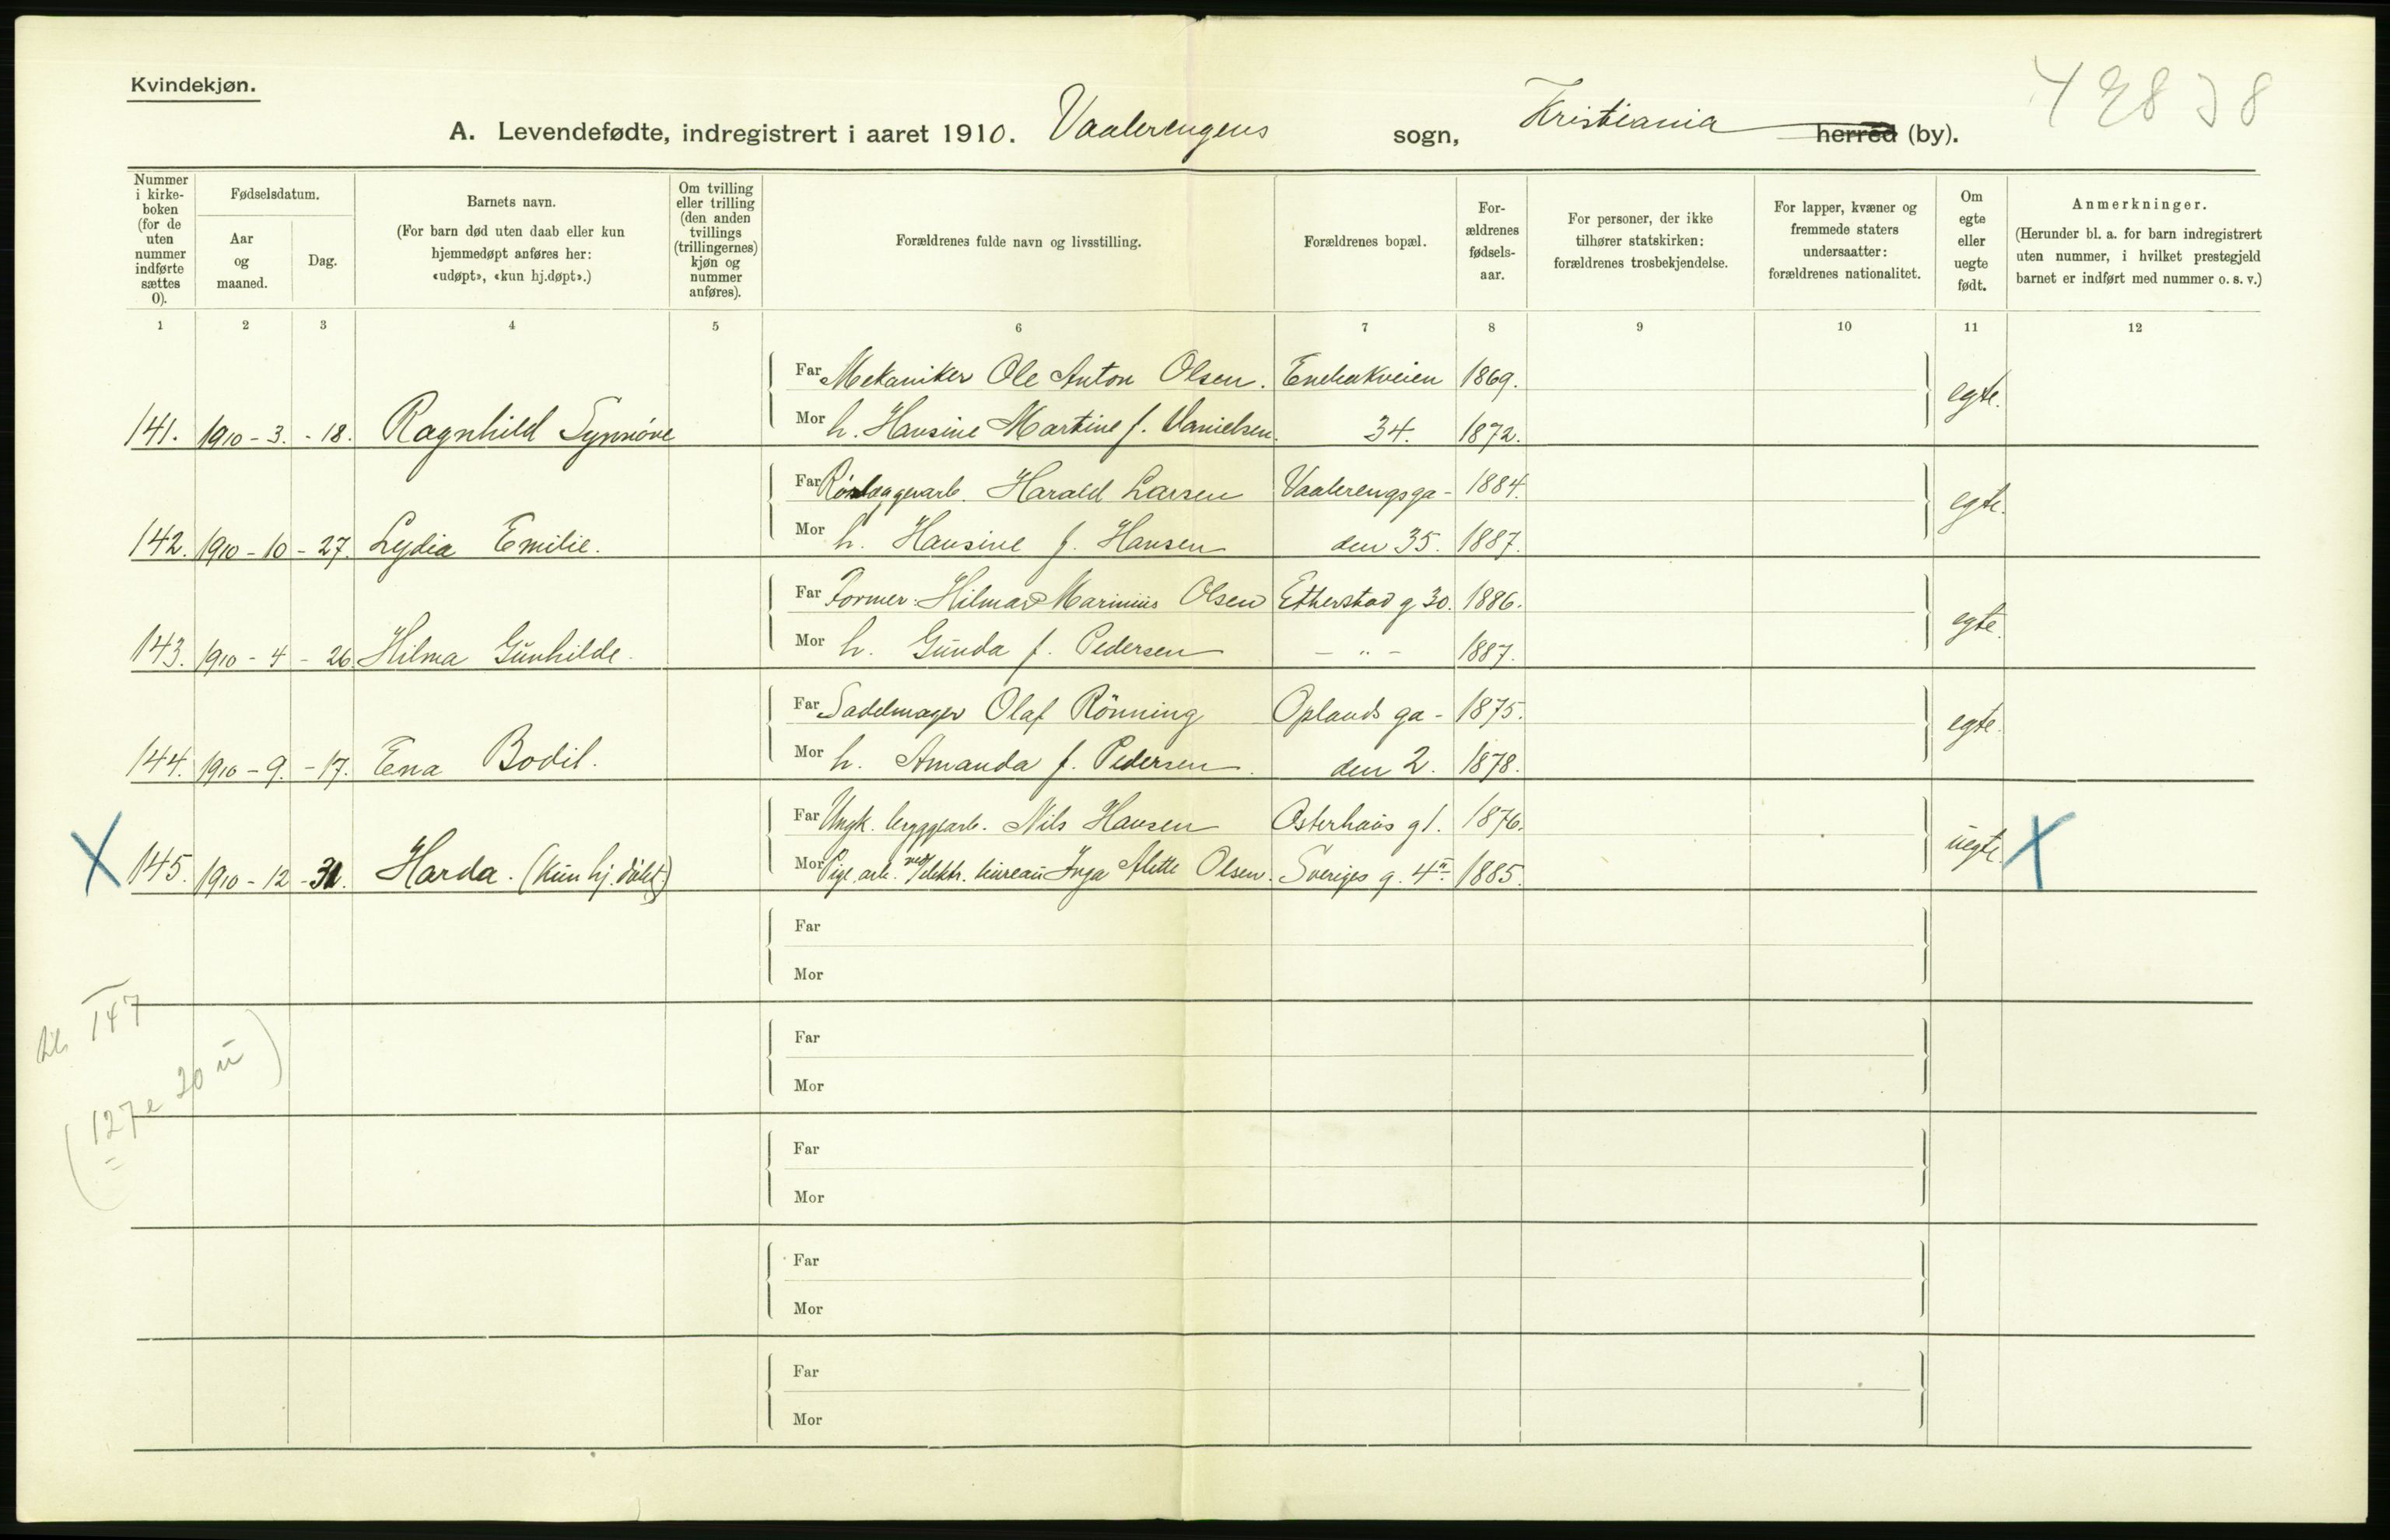 Kvindekjøn.
A. Levendefødte, indregistrert i aaret 1910. Vaalerengens sogn, Kristiania herred (by).
Nummer i kirkeboken (for de uten nummer indførte sættes 0).
Fødselsdatum.
Aar og maaned.
Dag.
Barnets navn.
(For barn død uten daab eller kun hjemmedøpt anføres her: «udøpt», «kun hj.døpt».)
Om tvilling eller trilling (den anden tvillings (trillingernes) kjøn og nummer anføres).
Forældrenes fulde navn og livsstilling.
Forældrenes bopæl.
For-ældrenes fødsels-aar.
For personer, der ikke tilhører statskirken: forældrenes trosbekjendelse.
For lapper, kvæner og fremmede staters undersaatter: forældrenes nationalitet.
Om egte eller uegte født.
Anmerkninger.
(Herunder bl. a. for barn indregistrert uten nummer, i hvilket prestegjeld barnet er indført med nummer o. s. v.)
1 2 3 4 5 6 7 8 9 10 11 12
Far Mekaniker Ole Anton Olsen. Enebakveien 1869.
141. 1910 - 3. - 18. Ragnhild Synnöve Mor h. Hansine Martine f. Danielsen. 34. 1872. egte.
Far Rörlæggerarb. Harald Larsen Vaalerengsga- 1884.
142. 1910 - 10 - 27. Lydia Emilie. Mor h. Hansine f. Hansen den 35. 1887. egte.
Far Former Hilmar Marinius Olsen Etterstad g 30. 1886.
143. 1910 - 4 - 26. Hilma Gunhilde. Mor h. Gunda f. Pedersen - " - 1887. egte.
Far Sadelmager Olaf Rönning Oplands ga- 1875.
144. 1910 - 9. - 17. Ena Bodil. Mor h. Amanda f. Pedersen. den 2. 1878. egte.
Far Ungk. bryggearb. Nils Hansen Osterhaus g 1. 1876.
X 145. 1910 - 12 - 31. Harda. (Kun hj. döbt) Mor Pige, arb. ved elektr. bureau Inga Alette Olsen. Sveriges g. 4 II. 1885. uegte. X
Far
Mor
147
Far
Mor
(127 e 20 u)
Far
Mor
Far
Mor
Far
Mor